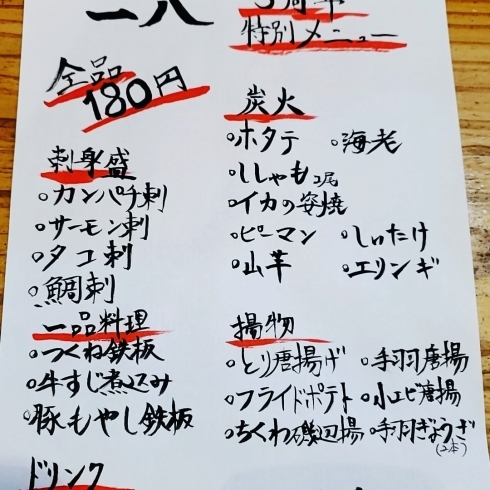 二八
3周年
特別メニュー
全品
180円
刺身盛
・カンパチ刺
・サーモン刺
・タコ刺
・鯛刺
一品料理
・つくね鉄板
・牛すじ煮込み
・豚もやし鉄板
ドリンク
炭火
・ホタテ ・海老
・ししゃも2尾
・イカの姿焼
・ピーマン ・しいたけ
・山芋 ・エリンギ
揚物
・とり唐揚げ ・手羽唐揚
・フライドポテト ・小エビ唐揚
・ちくわ磯辺揚 ・手羽ぎょうざ
(2本)